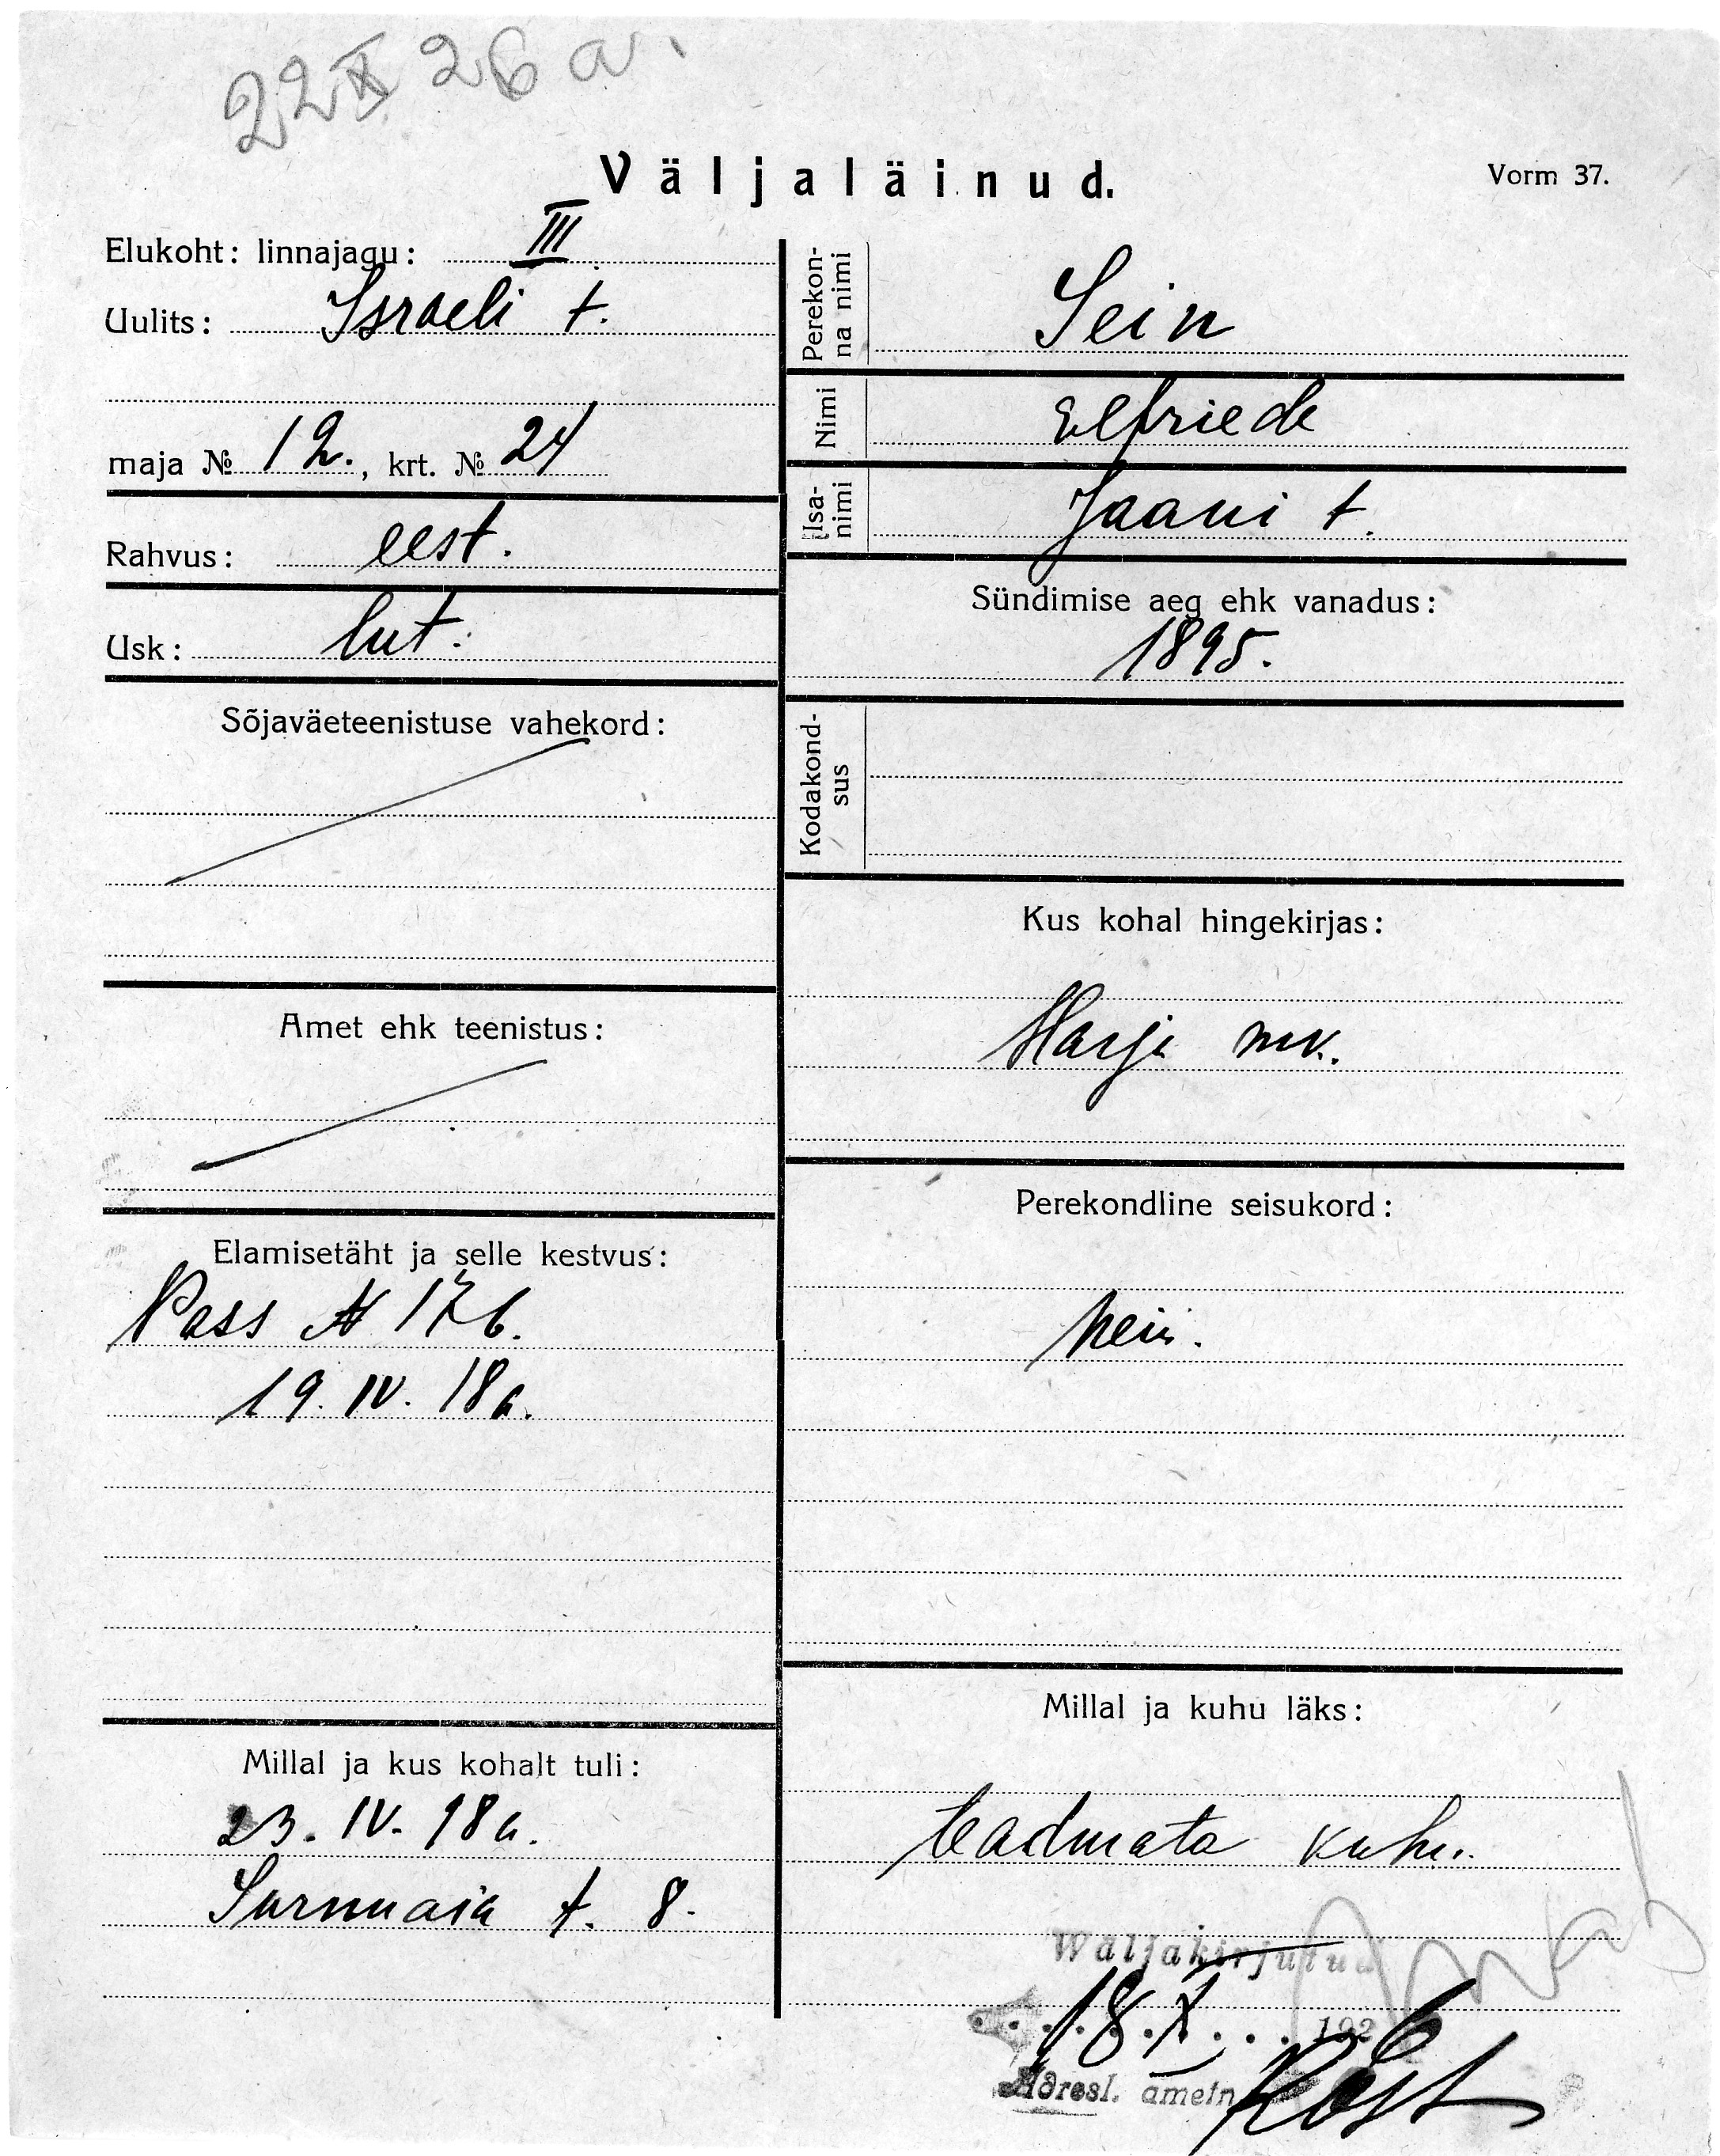 22 X 26 a.
Väljaläinud.
Vorm 37.
Elukoht: linnajagu: III
Uulits: Israeli t.
maja № 12., krt. № 24
Rahvus: eest.
Usk: lut.
Sõjaväeteenistuse vahekord:
Amet ehk teenistus:
Elamisetäht ja selle kestvus:
Pass № 176.
19. IV. 18 a.
Millal ja kus kohalt tuli:
23. IV. 18 a.
Surnuaia t. 8.
Perekon-
na nimi
Sein
Nimi
Elfriede
Isa-
nimi
Jaani t.
Sündimise aeg ehk vanadus:
1895.
Kodakond-
sus
Kus kohal hingekirjas:
Harju mk.
Perekondline seisukord:
neiu.
Millal ja kuhu läks:
teadmata kuhu.
Wäljakirjutud
18. X. 1926
Adresl. ametn